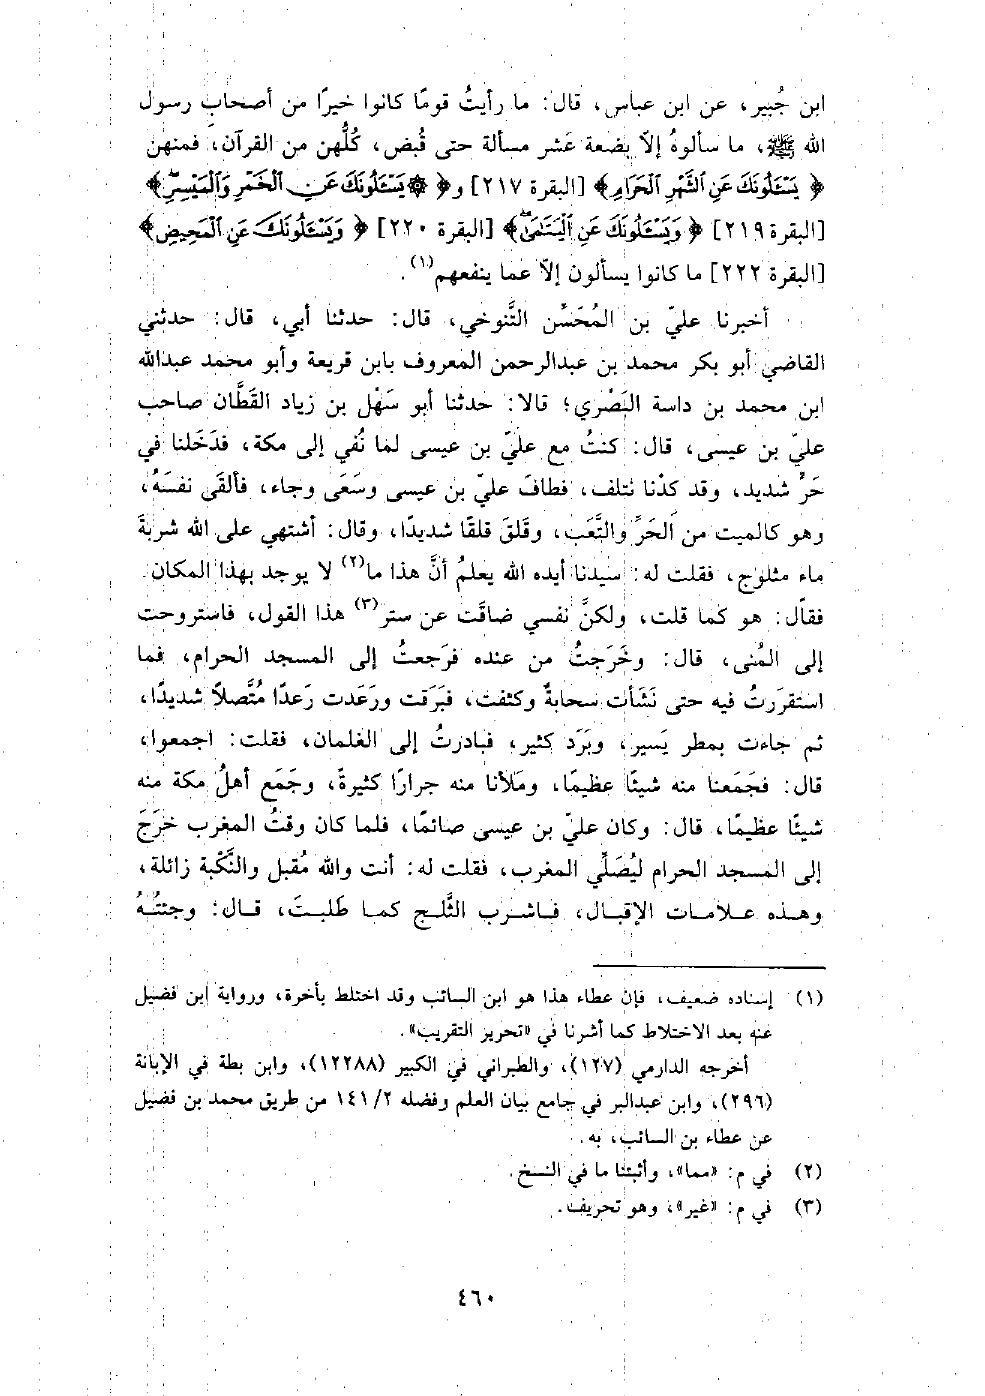 ابن جُبير، عن ابن عباس، قال: ما رأيتُ قومًا كانوا خيرًا من أصحاب رسول
الله ﷺ، ما سألوهُ إلاّ بضعة عَشر مسألة حتى قُبض، كُلُّهن من القرآن، فمنهن
﴿ يَسْـَٔلُونَكَ عَنِ ٱلشَّهْرِ ٱلْحَرَامِ﴾ [البقرة ٢١٧] و﴿ ۞ يَسْـَٔلُونَكَ عَنِ ٱلْخَمْرِ وَٱلْمَيْسِرِۖ﴾
[البقرة ٢١٩] ﴿ وَيَسْـَٔلُونَكَ عَنِ ٱلْيَتَـٰمَىٰۖ﴾ [البقرة ٢٢٠] ﴿ وَيَسْـَٔلُونَكَ عَنِ ٱلْمَحِيضِ﴾
[البقرة ٢٢٢] ما كانوا يسألون إلاّ عما ينفعهم(١).
أخبرنا عليّ بن المُحَسِّن التَّنوخي، قال: حدثنا أبي، قال: حدثني
القاضي أبو بكر محمد بن عبدالرحمن المعروف بابن قريعة وأبو محمد عبدالله
ابن محمد بن داسة البَصْري؛ قالا: حدثنا أبو سَهْل بن زياد القَطَّان صاحب
عليّ بن عيسى، قال: كنتُ مع عليّ بن عيسى لما نُفي إلى مكة، فدَخَلنا في
حَرٍّ شديد، وقد كدْنا نتلف، فطافَ عليّ بن عيسى وسَعَى وجاء، فألقَى نفسَهُ،
وهو كالميت من الحَرِّ والتَّعَب، وقَلقَ قلقًا شديدًا، وقال: أشتهي على الله شربةَ
ماء مثلوج، فقلت له: سيدنا أيده الله يعلمُ أنَّ هذا ما(٢) لا يوجد بهذا المكان.
فقال: هو كما قلت، ولكنَّ نفسي ضاقَت عن ستر(٣) هذا القول، فاستروحت
إلى المُنى، قال: وخَرَجتُ من عنده فرَجعتُ إلى المسجد الحرام، فما
استقرَرتُ فيه حتى نَشَأت سحابةٌ وكثفت، فبَرَقت ورَعَدت رَعدًا مُتَّصلاً شديدًا،
ثم جاءت بمطر يَسير، وبَرَد كثير، فبادرتُ إلى الغلمان، فقلت: اجمعوا،
قال: فجَمَعنا منه شيئًا عظيمًا، ومَلأنا منه جرارًا كثيرةً، وجَمَع أهلُ مكة منه
شيئًا عظيمًا، قال: وكان عليّ بن عيسى صائمًا، فلما كان وقتُ المغرب خَرَجَ
إلى المسجد الحرام ليُصَلِّي المغرب، فقلت له: أنت والله مُقبل والنَّكْبة زائلة،
وهذه علامات الإقبال، فاشرب الثَّلج كما طَلبتَ، قال: وجئتُهُ
(١) إسناده ضعيف، فإن عطاء هذا هو ابن السائب وقد اختلط بأخرة، ورواية ابن فضيل
عنه بعد الاختلاط كما أشرنا في «تحرير التقريب».
أخرجه الدارمي (١٢٧)، والطبراني في الكبير (١٢٢٨٨)، وابن بطة في الإبانة
(٢٩٦)، وابن عبدالبر في جامع بيان العلم وفضله ٢/ ١٤١ من طريق محمد بن فضيل
عن عطاء بن السائب، به.
(٢) في م: «مما»، وأثبتنا ما في النسخ.
(٣) في م: «غير»، وهو تحريف.
٤٦٠